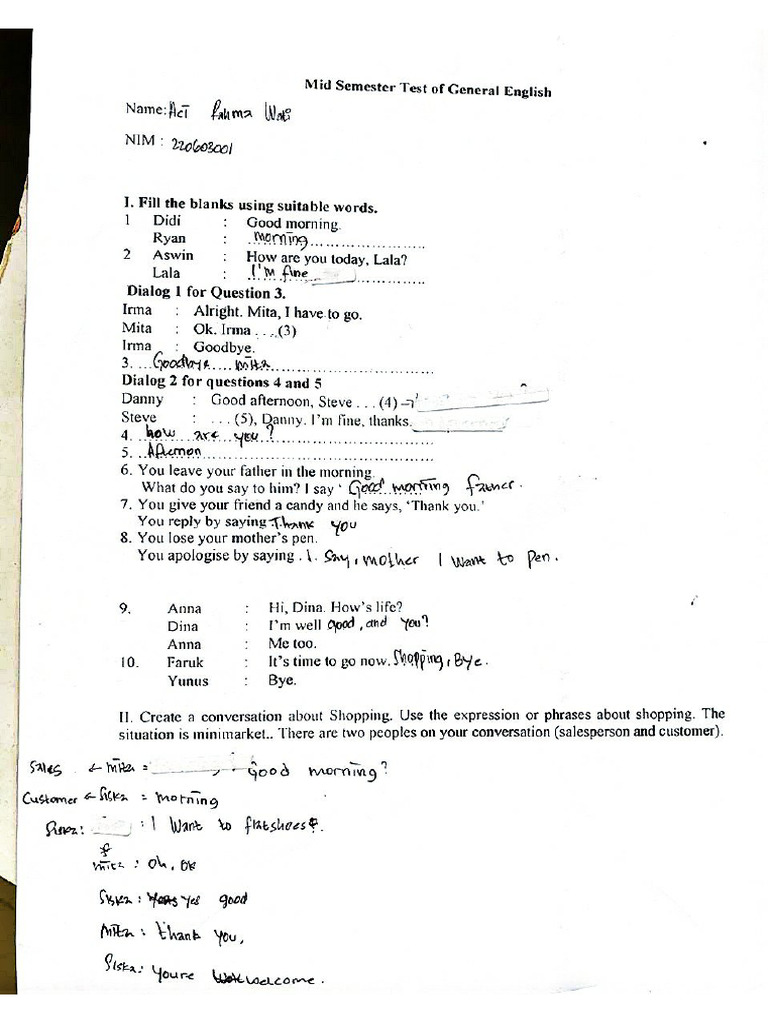 Mid Semester Test of General English
Name: Aci Rahma Wati
NIM : 220603001
I. Fill the blanks using suitable words.
1 Didi : Good morning.
Ryan : morning
2 Aswin : How are you today, Lala?
Lala : I'm fine
Dialog 1 for Question 3.
Irma : Alright. Mita, I have to go.
Mita : Ok. Irma . . . .(3)
Irma : Goodbye.
3. ... Goodbye mita
Dialog 2 for questions 4 and 5
Danny : Good afternoon, Steve . . . (4)
Steve : . . . (5), Danny. I'm fine, thanks.
4. how are you?
5. Afternon
6. You leave your father in the morning.
What do you say to him? I say ' Good morning father.
7. You give your friend a candy and he says, 'Thank you.'
You reply by saying Thank you
8. You lose your mother's pen.
You apologise by saying . I. Say, mother I want to pen.
9. Anna : Hi, Dina. How's life?
Dina : I'm well good, and you?
Anna : Me too.
10. Faruk : It's time to go now. Shopping, Bye.
Yunus : Bye.
II. Create a conversation about Shopping. Use the expression or phrases about shopping. The
situation is minimarket.. There are two peoples on your conversation (salesperson and customer).
Sales ← mita = Good morning?
Customer ← Siska = morning
Siska : I want to flatshoes.
mita : Oh, ok
Siska : yes good
Mita : thank you,
Siska : Youre welcome.